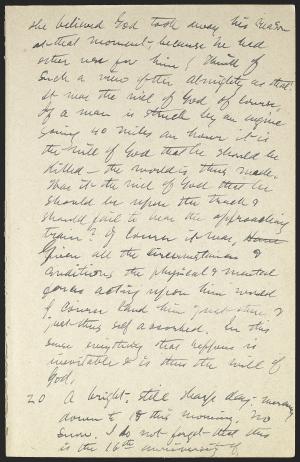 she believed God took away his reason
at that moment, because he had
other use for him! Think of
such a view of the almighty as that!
It was the will of God of course,
if a man is struck by an engine
going 40 miles an hour it is
the will of God that he should be
killed — the world is thus made.
Was it the will of God that he
should be upon the track &
should fail to hear the approaching
train? Of course it was,
Given all the circumstances &
conditions the physical & mental
forces acting upon him would
of course land him just there &
just thus self absorbed. In this
sense everything that happens is
inevitable & is thus the will of
God.
20 A bright, still sharp day; mercury
down to 18 this morning. No
snow. I do not forget that this
is the 16th anniversary of